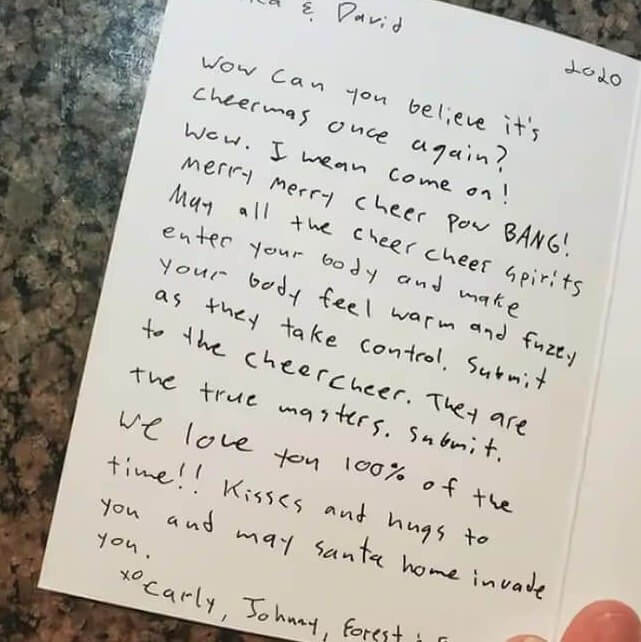 & David
2020
Wow can you believe it's
cheermas once again?
Wow. I mean come on!
Merry Merry cheer Pow BANG!
May all the cheer cheer spirits
enter your body and make
your body feel warm and fuzzy
as they take control. Submit
to the cheercheer. They are
the true masters. Submit.
We love you 100% of the
time!! Kisses and hugs to
you and may santa home invade
you.
xo Carly, Johnny, Forest